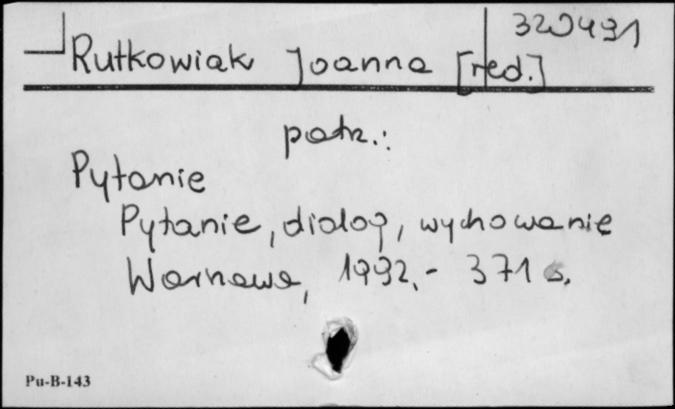 320491
Rutkowiak Joanna [red.]
patrz.:
Pytanie
Pytanie, dialog, wychowanie
Warszawa, 1992.- 371 s.
Pu-B-143